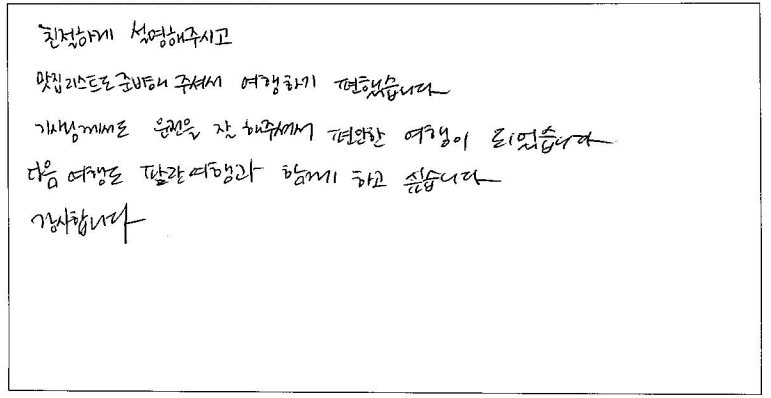 친절하게 설명해주시고
맛집리스트도 준비해 주셔서 여행하기 편했습니다
기사님께서도 운전을 잘 해주셔서 편안한 여행이 되었습니다
다음 여행도 파란여행과 함께 하고 싶습니다
감사합니다